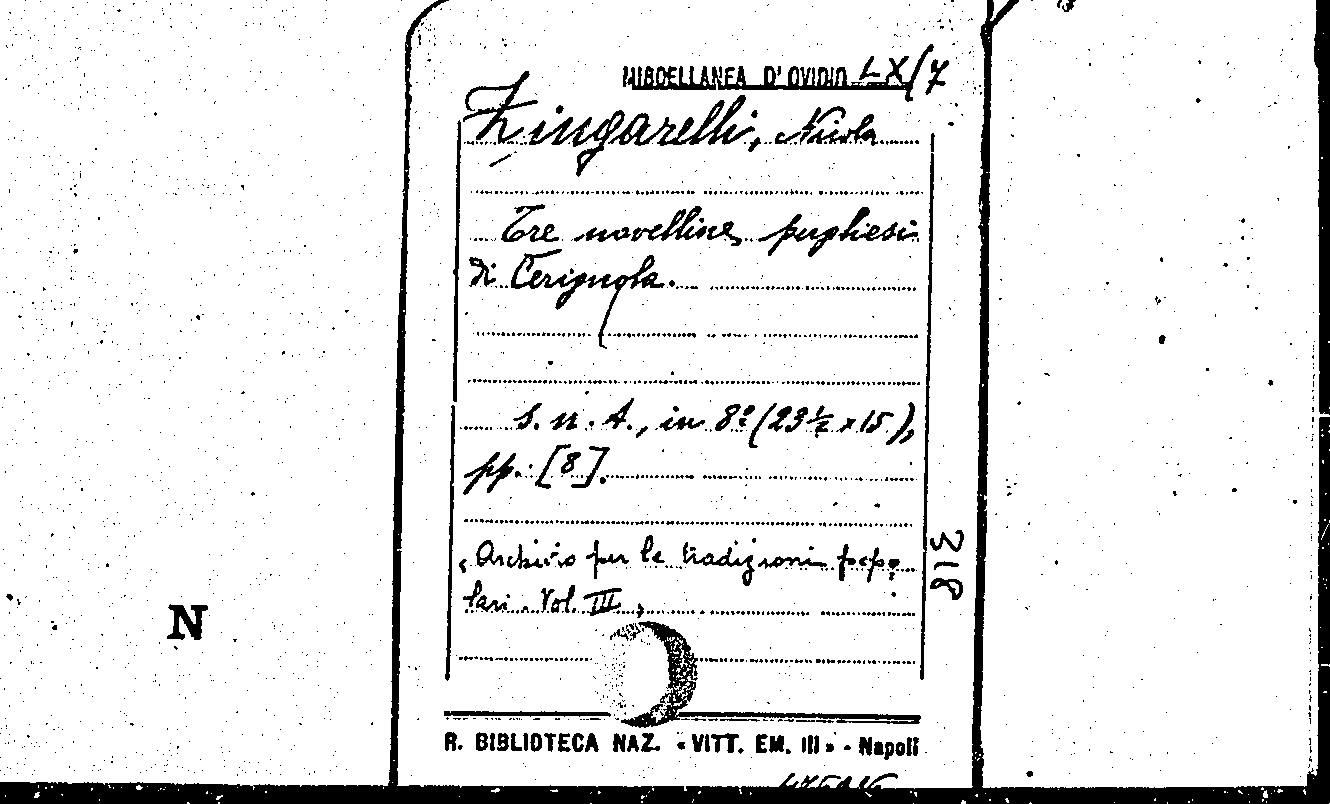 MISCELLANEA D'OVIDIO LX/7
Zingarelli, Nicola
Tre novelline pugliesi
di Cerignola.
S. n. t., in 8º (23½ x 15),
pp. [8].
318
"Archivio per le tradizioni popo
lari. Vol. III"
N
R. BIBLIOTECA NAZ. «VITT. EM. III» - Napoli